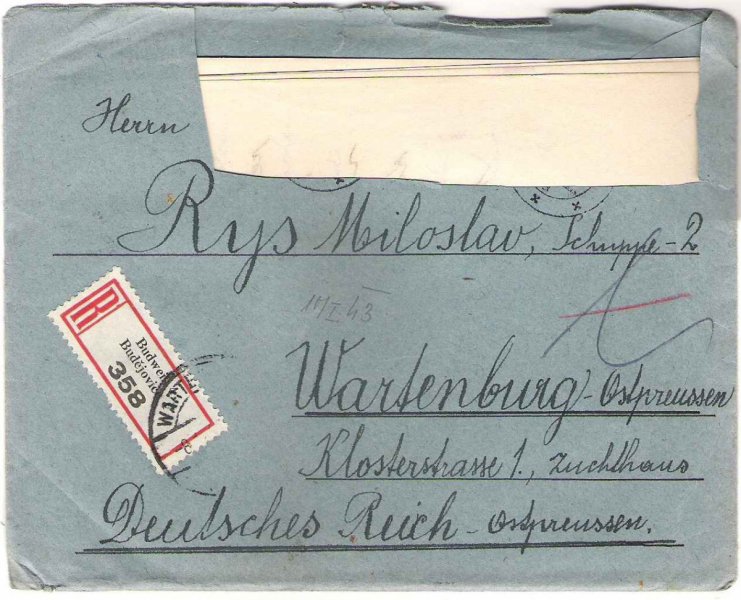 Herrn
Rys Miloslav,
11/I 43
R
Budwe
Budějovic
358
WART
Wartenburg - Ostpreussen
Klosterstrasse 1., Zuchthaus
Deutsches Reich - Ostpreussen.